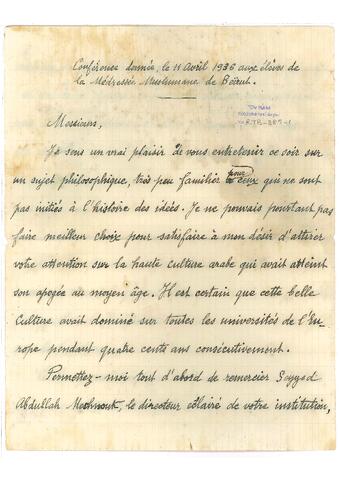 Conférence donnée, le 11 Avril 1936 aux élèves de
la Médressée Musulmane de Beirut.
Messieurs,
Je sens un vrai plaisir de vous entretenir ce soir sur
un sujet philosophique, très peu familier pour ceux qui ne sont
pas initiés à l'histoire des ideés. Je ne pouvais pourtant pas
faire meilleur choix pour satisfaire à mon désir d'attirer
votre attention sur la haute culture arabe qui avait atteint
son apogée au moyen âge. Il est certain que cette belle
Culture avait dominé sur toutes les universités de l'Eu-
rope pendant quatre cents ans consécutivement.
Permettez-moi tout d'abord de remercier Sayyed
Abdullah Mechnouk, le directeur éclairé de votre institution,